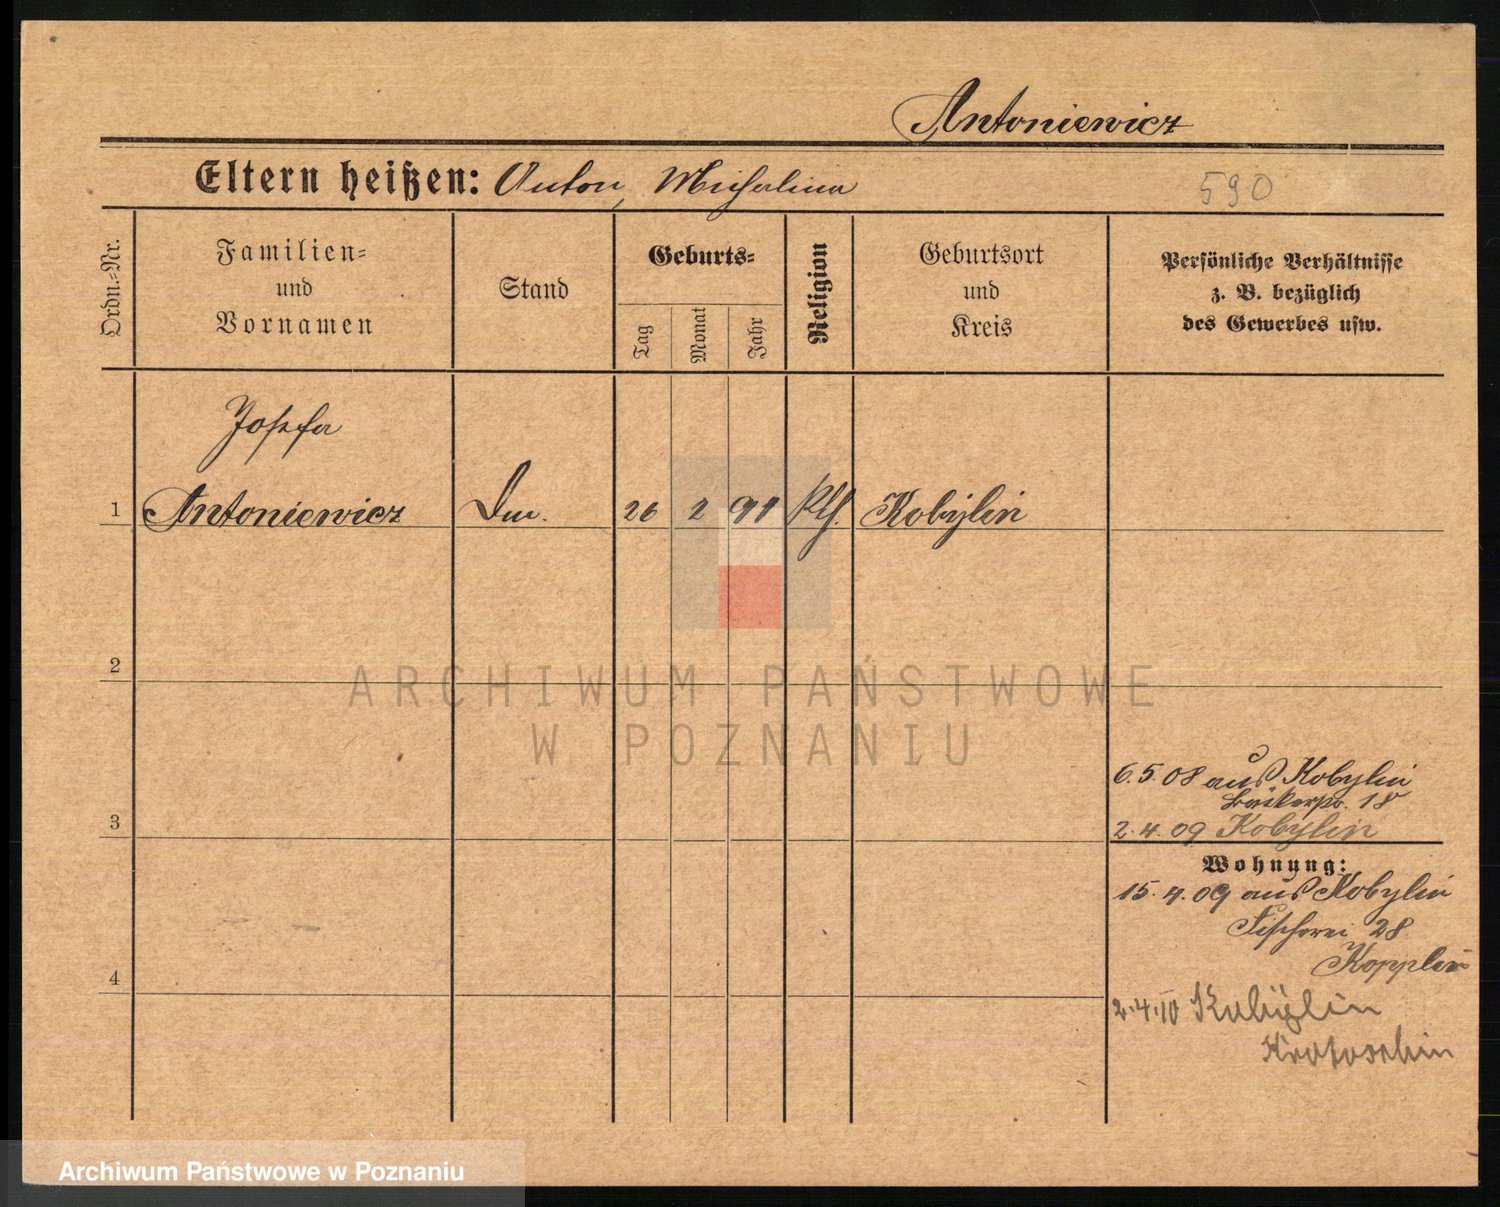 Antoniewicz
Eltern heißen: Anton, Michalina
590
Ordn.-Nr.
Familien-
und
Vornamen
Stand
Geburts-
Tag
Monat
Jahr
Religion
Geburtsort
und
Kreis
Persönliche Verhältnisse
z. B. bezüglich
des Gewerbes usw.
Josefa
1 Antoniewicz 26 2 91 Kth. Kobylin
2
ARCHIWUM PAŃSTWOWE
W POZNANIU
6.5.08 aus Kobylin
18
3 2.4.09 Kobylin
Wohnung:
15.4.09 aus Kobylin
Fischerei 28
Kopplin
4
2.4.10 Kobylin
Krotoschin
Archiwum Państwowe w Poznaniu